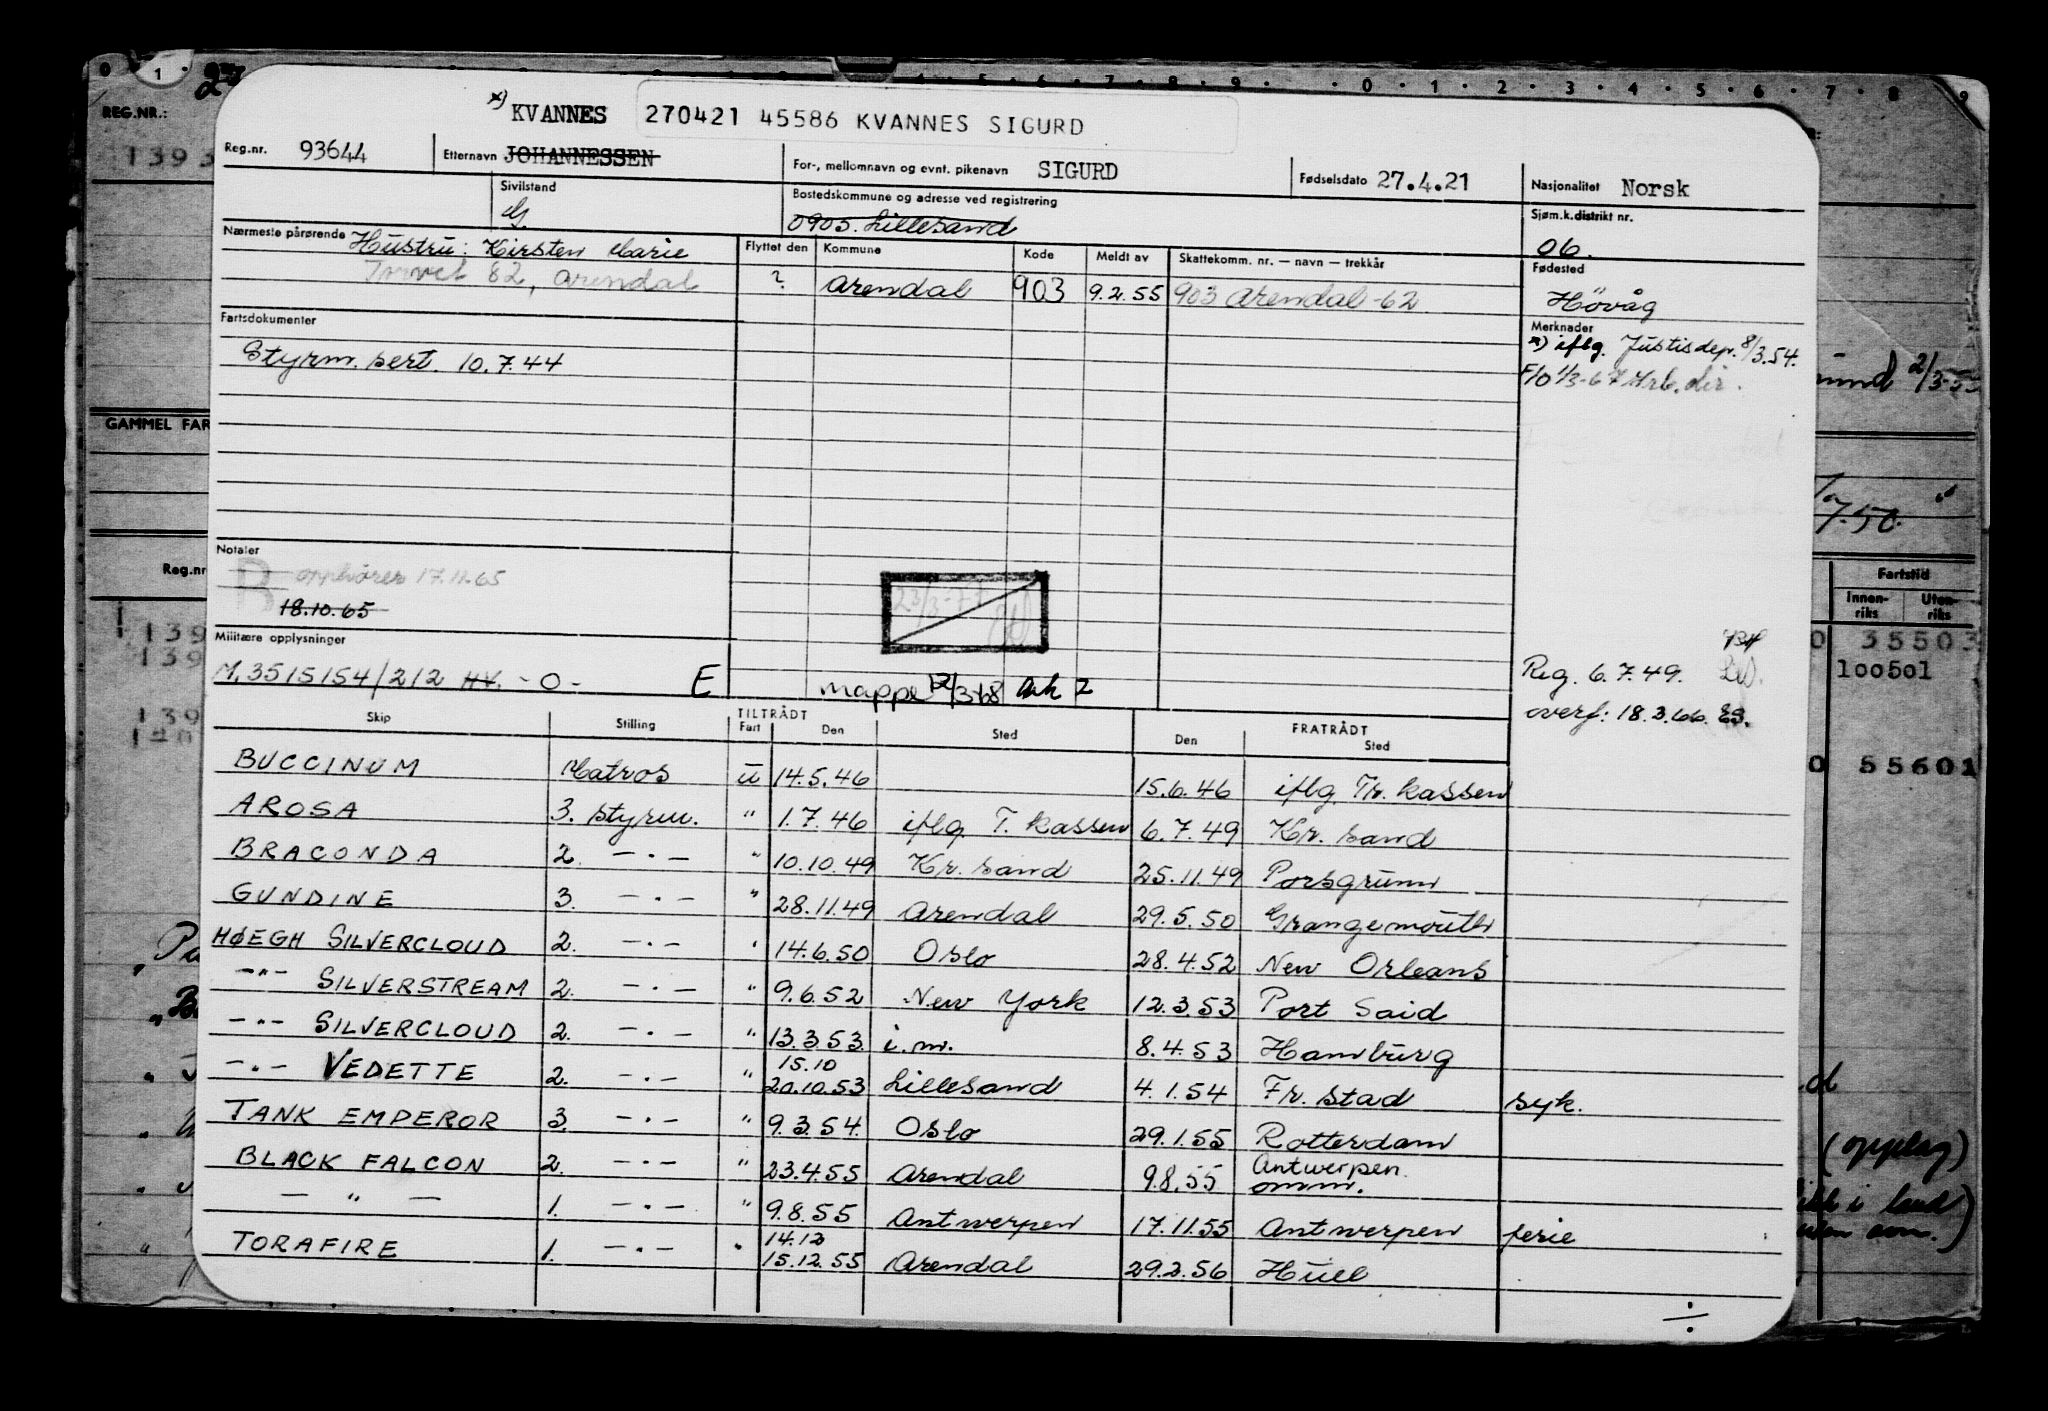 *) KVANNES 270421 45586 KVANNES SIGURD
Reg.nr. 93644 Etternavn JOHANNESSEN For-, mellomnavn og evnt. pikenavn SIGURD Fødselsdato 27.4.21 Nasjonalitet Norsk
Sivilstand G. Bostedskommune og adresse ved registrering 0905. Lillesand Sjøm.k.distrikt nr. 06.
Nærmeste pårørende Hustru: Kirsten Marie
82, Arendal
Flyttet den Kommune Kode Meldt av Skattekomm. nr. — navn — trekkår
? Arendal 903 9.2.55 903 Arendal -62
Fødested
Høvåg
Merknader
*) iflg. Justisdep. 8/3.54.
F/O 1/3-67 Arb.dir.
Fartsdokumenter
Styrm. sert. 10.7.44
Notaler
B opphører 17.11.65
18.10.65
23/3-77
Militære opplysninger
M.3515154/212 HV. -O- E
mappe 12/3-68 Ark 2
Reg. 6.7.49.
overf: 18.3.66.
Skip Stilling TILTRÅDT Fart Den Sted FRATRÅDT Den Sted
BUCCINUM Matros u 14.5.46 15.6.46 iflg. Tr. kassen
AROSA 3. styrm. " 1.7.46 iflg. T. kassen 6.7.49 Kr. sand
BRACONDA 2. —"— " 10.10.49 Kr. sand 25.11.49 Porsgrunn
GUNDINE 3. —"— " 28.11.49 Arendal 29.5.50 Grangemouth
HØEGH SILVERCLOUD 2. —"— " 14.6.50 Oslo 28.4.52 New Orleans
—"— SILVERSTREAM 2. —"— " 9.6.52 New York 12.3.53 Port Said
—"— SILVERCLOUD 2. —"— " 13.3.53 i.m. 8.4.53 Hamburg
—"— VEDETTE 2. —"— " 15.10 20.10.53 Lillesand 4.1.54 Fr. stad syk.
TANK EMPEROR 3. —"— " 9.3.54. Oslo 29.1.55 Rotterdam
BLACK FALCON 2. —"— " 23.4.55 Arendal 9.8.55 Antwerpen omm.
—"— 1. —"— " 9.8.55 Antwerpen 17.11.55 Antwerpen ferie
TORAFIRE 1. —"— " 14.12 15.12.55 Arendal 29.2.56 Hull
÷
REG.NR.:
1393
GAMMEL FAR
Reg.nr
139
139
139
2/3-55
7.50.
Fartstid
Innen-riks Uten-riks
0 35503
100501
0 55601
(opplag)
i land